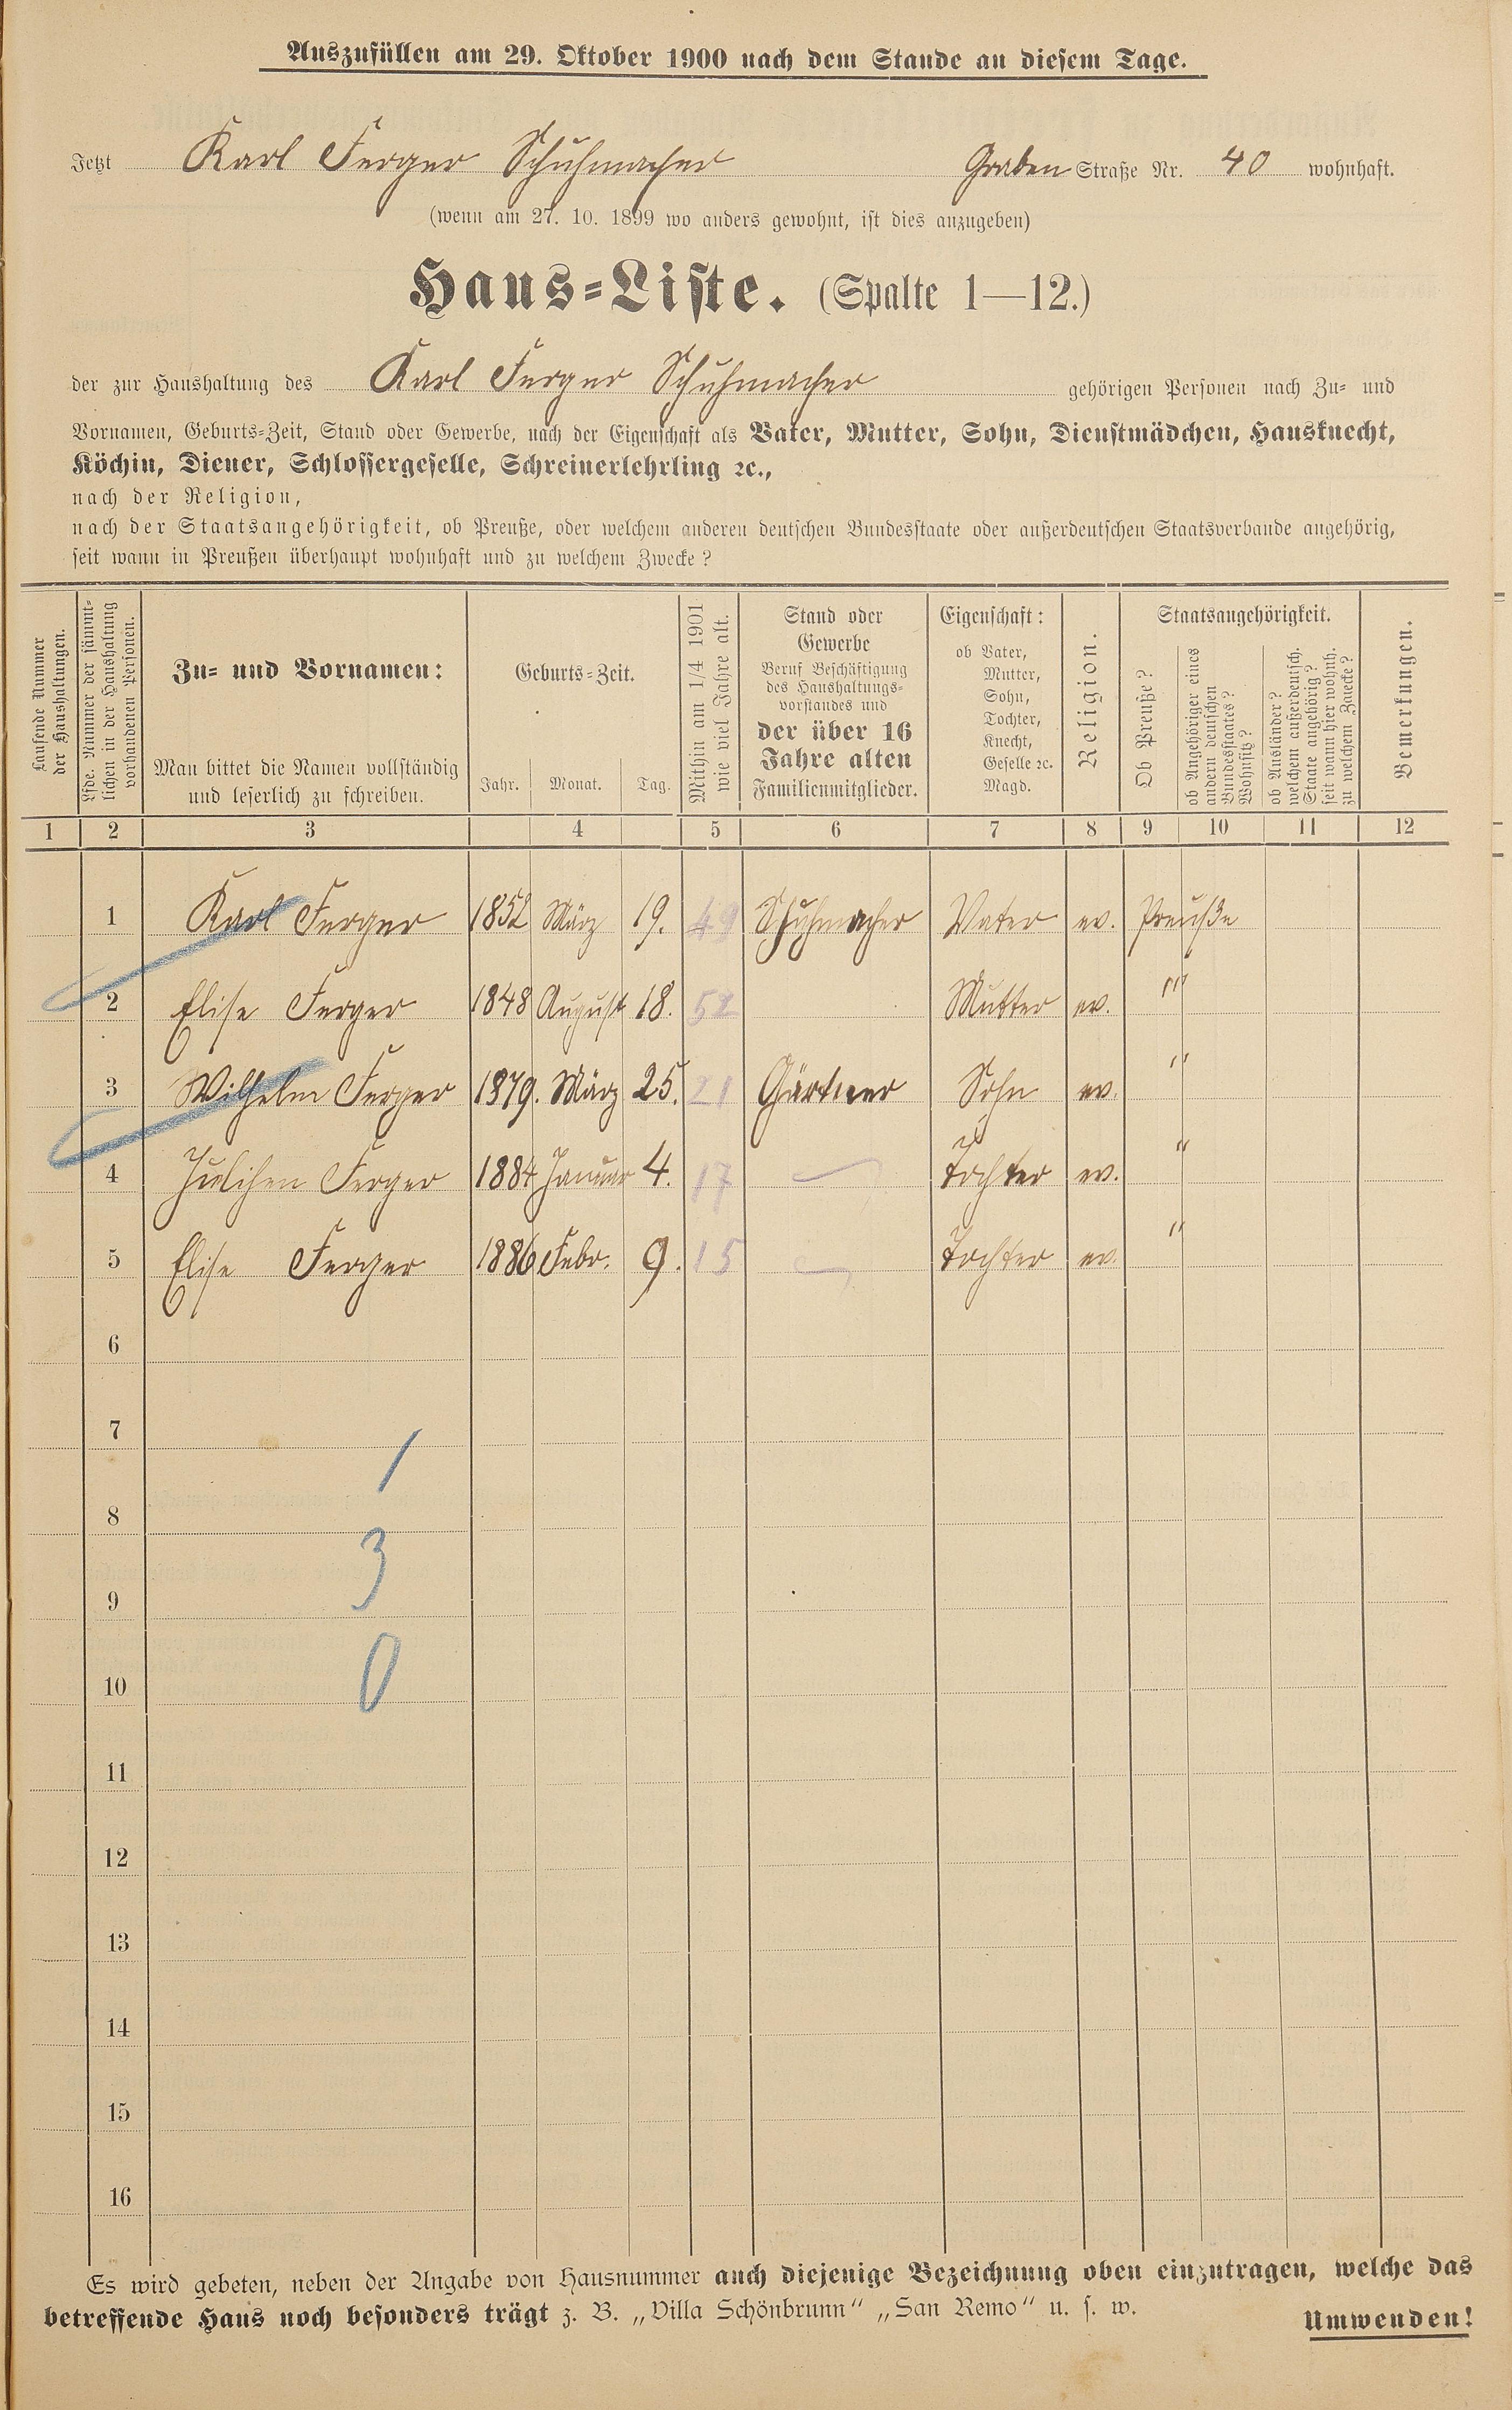 Auszufüllen am 29. Oktober 1900 nach dem Stande an diesem Tage.
Jetzt Karl Ferger Schuhmacher Graben Straße Nr. 40 wohnhaft.
(wenn am 27. 10. 1899 wo anders gewohnt, ist dies anzugeben)
Haus=Liste. (Spalte 1—12.)
der zur Haushaltung des Karl Ferger Schuhmacher gehörigen Personen nach Zu= und
Vornamen, Geburts=Zeit, Stand oder Gewerbe, nach der Eigenschaft als Vater, Mutter, Sohn, Dienstmädchen, Hausknecht,
Köchin, Diener, Schlossergeselle, Schreinerlehrling ꝛc.,
nach der Religion,
nach der Staatsangehörigkeit, ob Preuße, oder welchem anderen deutschen Bundesstaate oder außerdeutschen Staatsverbande angehörig,
seit wann in Preußen überhaupt wohnhaft und zu welchem Zwecke?
Laufende Nummer
der Haushaltungen.
Lfde. Nummer der sämmt=
lichen in der Haushaltung
vorhandenen Personen.
Zu= und Vornamen:
Man bittet die Namen vollständig
und leserlich zu schreiben.
Geburts=Zeit.
Jahr. Monat. Tag.
Mithin am 1/4 1901
wie viel Jahre alt.
Stand oder
Gewerbe
Beruf Beschäftigung
des Haushaltungs=
vorstandes und
der über 16
Jahre alten
Familienmitglieder.
Eigenschaft:
ob Vater,
Mutter,
Sohn,
Tochter,
Knecht,
Geselle ꝛc.
Magd.
Religion.
Staatsangehörigkeit.
Ob Preuße?
ob Angehöriger eines
andern deutschen
Bundesstaates?
Wohnsitz?
ob Ausländer?
welchem außerdeutsch.
Staate angehörig?
seit wann hier wohnh.
zu welchem Zwecke?
Bemerkungen.
1 2 3 4 5 6 7 8 9 10 11 12
1 Karl Ferger 1852 März 19. 49 Schuhmacher Vater ev. Preuße
2 Elise Ferger 1848 August 18. 52 Mutter ev. "
3 Wilhelm Ferger 1879. März 25. 21 Gärtner Sohn ev. "
4 Julchen Ferger 1884 Januar 4. 17 Tochter ev. "
5 Elise Ferger 1886 Febr. 9. 15 Tochter ev. "
6
7
1
8
3
9
0
10
11
12
13
14
15
16
Es wird gebeten, neben der Angabe von Hausnummer auch diejenige Bezeichnung oben einzutragen, welche das
betreffende Haus noch besonders trägt z. B. „Villa Schönbrunn“ „San Remo“ u. s. w.
Umwenden!